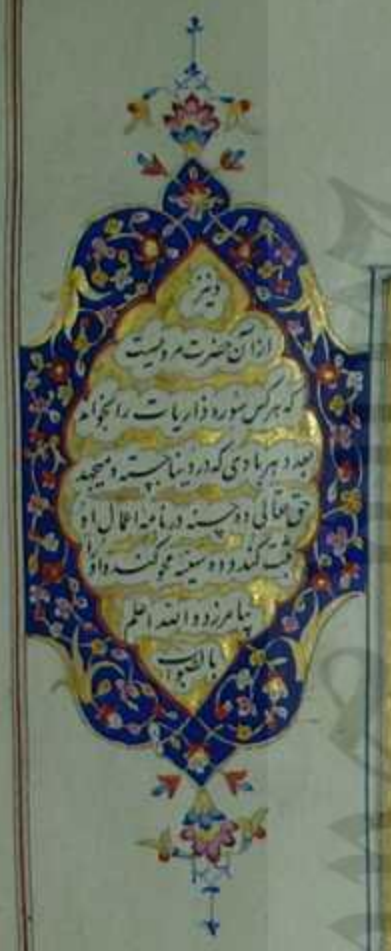 و نیز
از آن حضرت مرویست
که هر کس سوره ذاریات را بخواند
بعدد هر بادی که در دنیا جسته و میجهد
حق تعالی ده حسنه در نامه اعمال او
ثبت کند و ده سیئه محو کند و او را
بیامرزد و الله اعلم
بالصواب